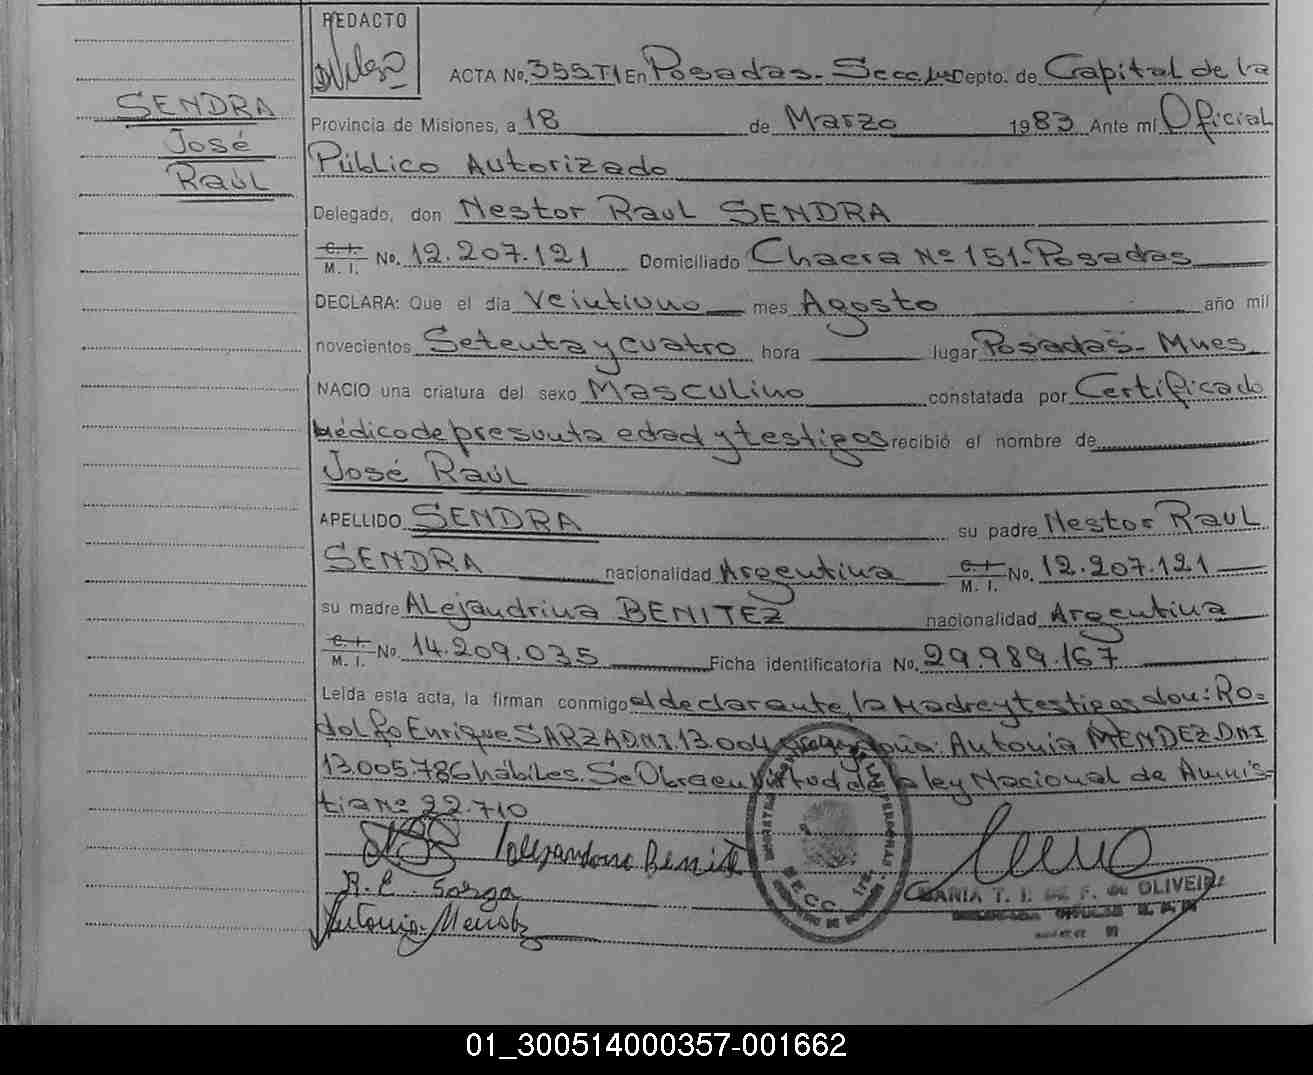 REDACTO
SENDRA
José
Raúl
ACTA No. 355 T1 En Posadas - Secc. Depto. de Capital de la
Provincia de Misiones, a 18 de Marzo 1983 Ante mí Oficial
Público Autorizado
Delegado, don Nestor Raul SENDRA
C. I. M. I. No. 12.207.121 Domiciliado Chacra Nº 151 - Posadas
DECLARA: Que el día Veintiuno mes Agosto año mil
novecientos Setenta y cuatro hora lugar Posadas - Mnes
NACIO una criatura del sexo Masculino constatada por Certificado
Médico de presunta edad y testigos recibió el nombre de
José Raúl
APELLIDO SENDRA su padre Nestor Raul
SENDRA nacionalidad Argentina C. I. M. I. No. 12.207.121
su madre Alejandrina BENITEZ nacionalidad Argentina
C. I. M. I. No 14.209.035 Ficha identificatoria No. 29.989.167
Leída esta acta, la firman conmigo el declarante, la Madre y testigos don: Ro=
dolfo Enrique SARZA DNI. 13.004 Antonia MENDEZ DNI
13.005.786 hábiles. Se Obra en Virtud de la ley Nacional de Amnis=
tia Nº 22.710
Alejandrina Benit
R. E. Sarza
Antonia Mendez
MARIA T. DE F. de OLIVEIRA
01_300514000357-001662